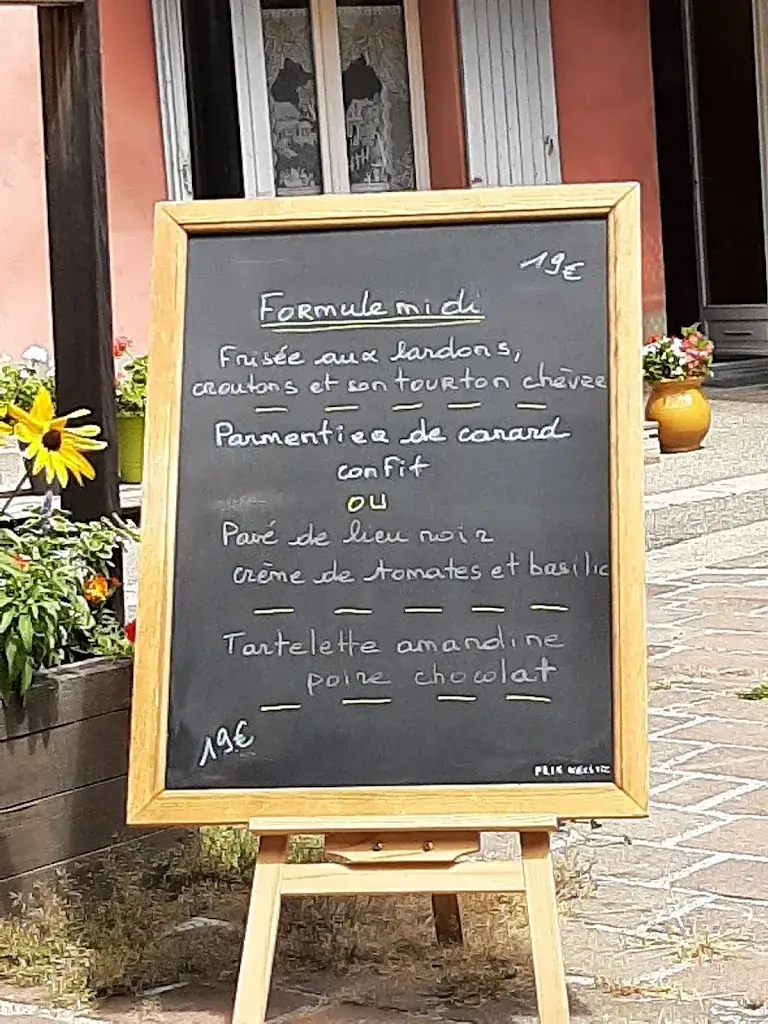 19€
Formule midi
Frisée aux lardons,
croutons et son tourton chèvre
Parmentier de canard
confit
ou
Pavé de lieu noir
crème de tomates et basilic
Tartelette amandine
poire chocolat
19€